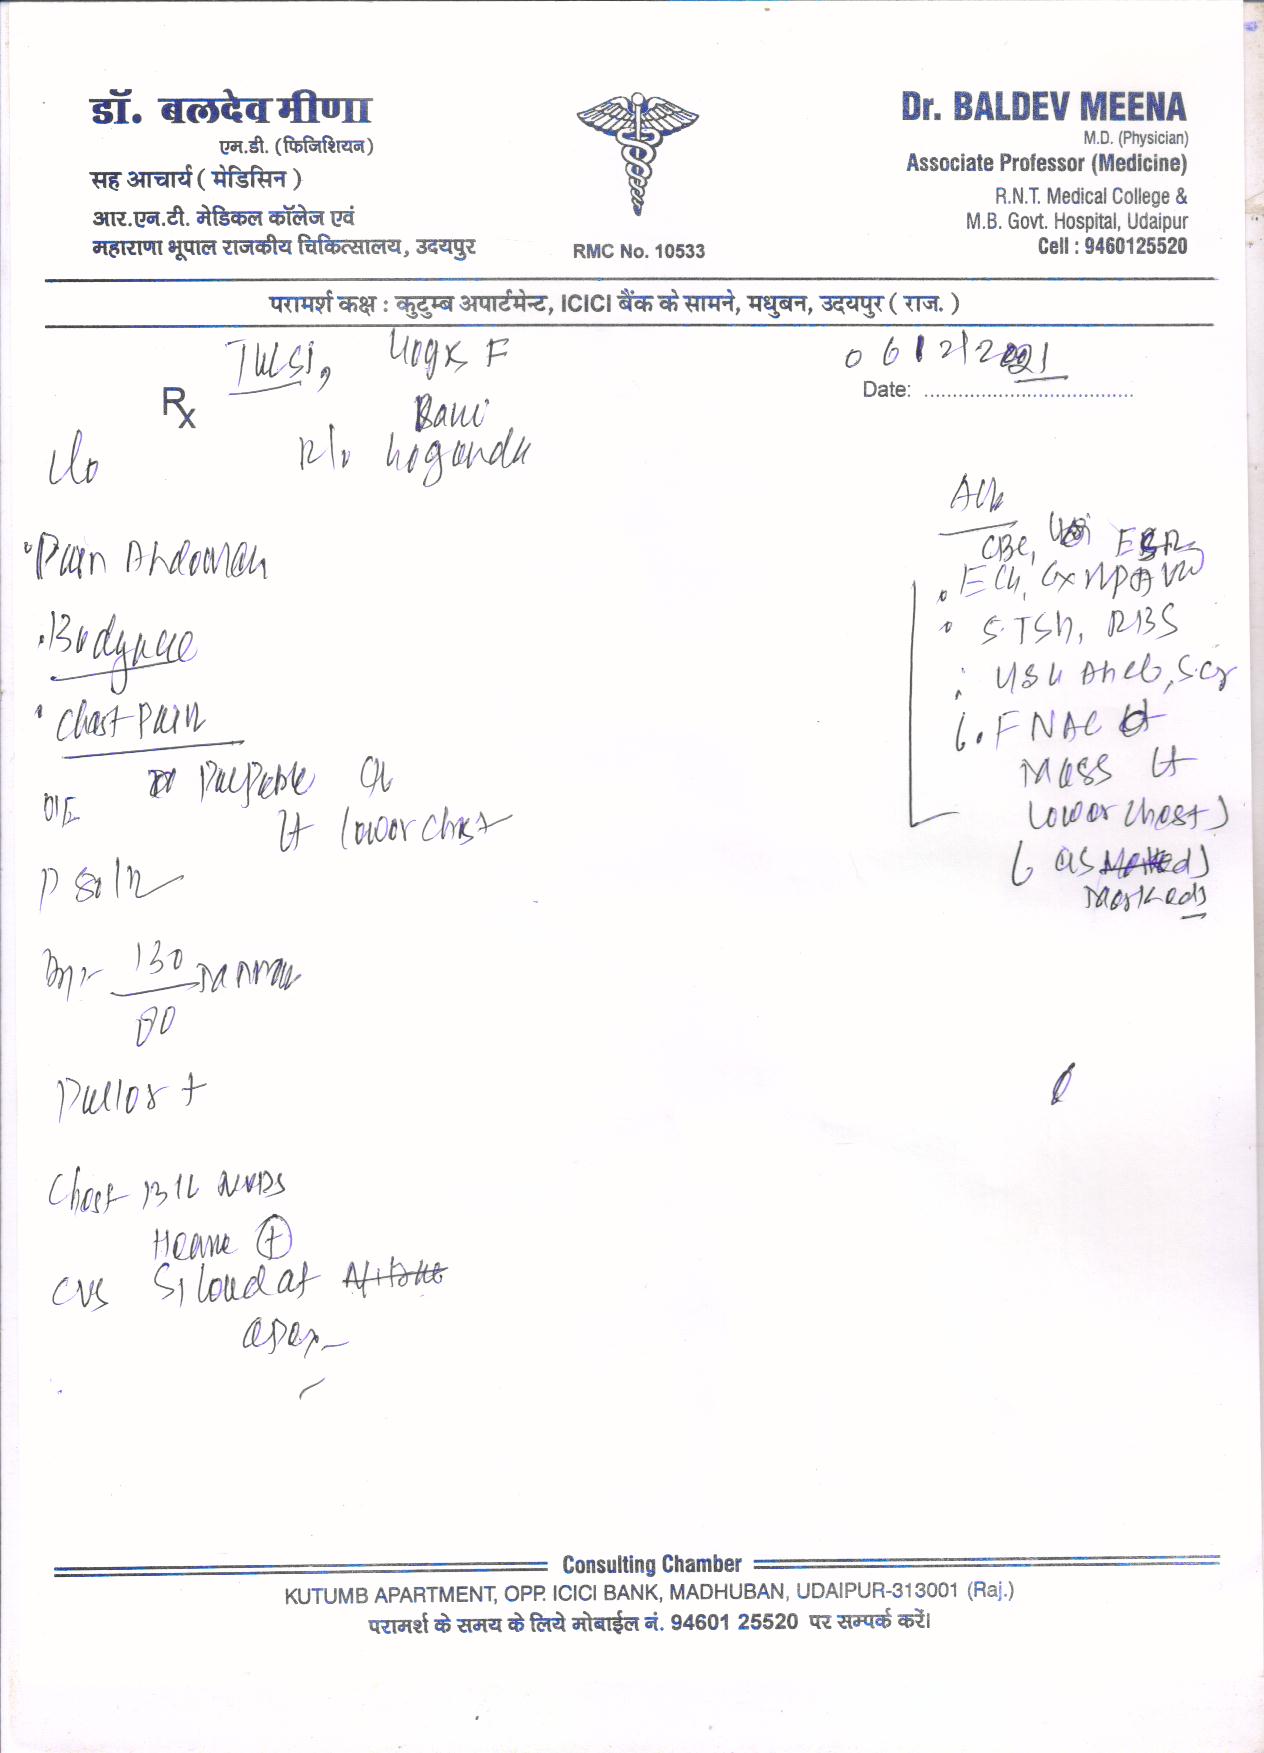 डॉ. बलदेव मीणा
एम.डी. (फिजिशियन)
सह आचार्य ( मेडिसिन )
आर.एन.टी. मेडिकल कॉलेज एवं
महाराणा भूपाल राजकीय चिकित्सालय, उदयपुर
RMC No. 10533
Dr. BALDEV MEENA
M.D. (Physician)
Associate Professor (Medicine)
R.N.T. Medical College &
M.B. Govt. Hospital, Udaipur
Cell : 9460125520
परामर्श कक्ष : कुटुम्ब अपार्टमेन्ट, ICICI बैंक के सामने, मधुबन, उदयपुर ( राज. )
Tulsi, 40yrs F
06/2/2021
Date:
Rx
R/o Goganda
C/o
Pain Abdomen
Bodyache
Chest Pain
O/E Palpable
Lt lower chest
P
130 mmHg
80
Pallor +
Chest B/L NVBS
CVS S1 loud at
apex
Adv
CBC, ESR
ECG, CxR PA VW
S.TSH, RBS
USG Abd, S.Cr
FNAC
Mass Lt
lower chest)
(as
Marked)
Consulting Chamber
KUTUMB APARTMENT, OPP. ICICI BANK, MADHUBAN, UDAIPUR-313001 (Raj.)
परामर्श के समय के लिये मोबाईल नं. 94601 25520 पर सम्पर्क करें।